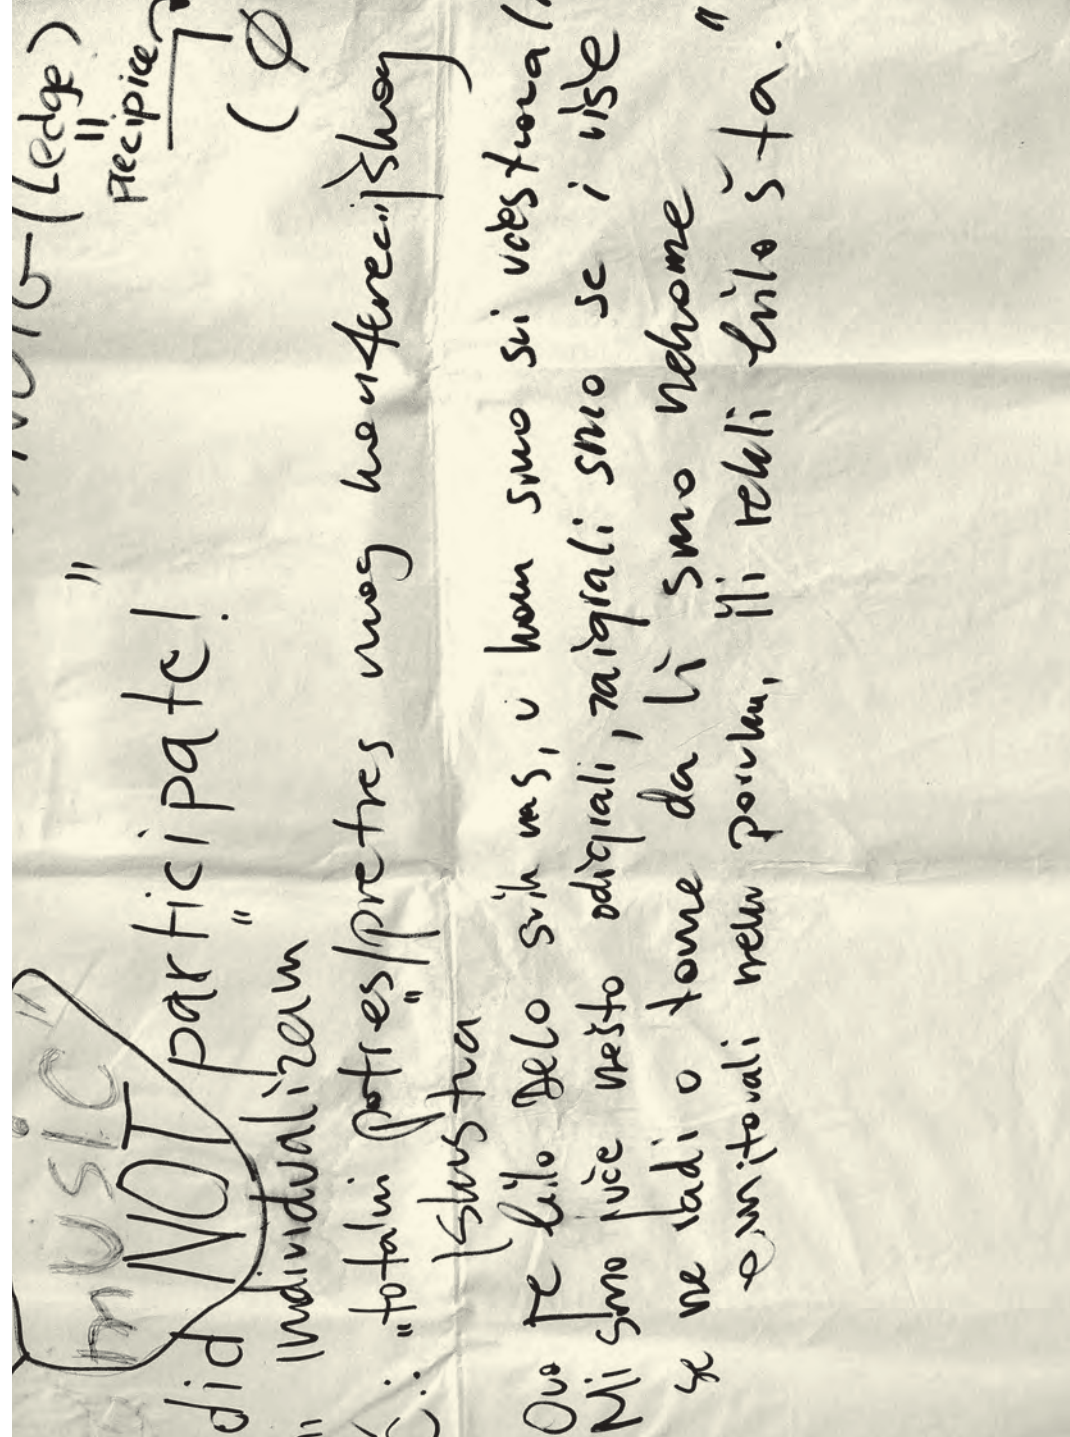 (Ledge)
"
Precipice
(Ø
"music"
did NOT participate!"
"Individualizam"
Ć.: "totalni "potres/pretres mog konferencijskog
iskustva
Ovo je bilo DELO svih nas, u kom smo svi učestvovali.
Mi smo juče nešto odigrali, zaigrali smo se i više
se ne radi o tome da li smo nekome
emitovali neku poruku, ili rekli bilo šta."